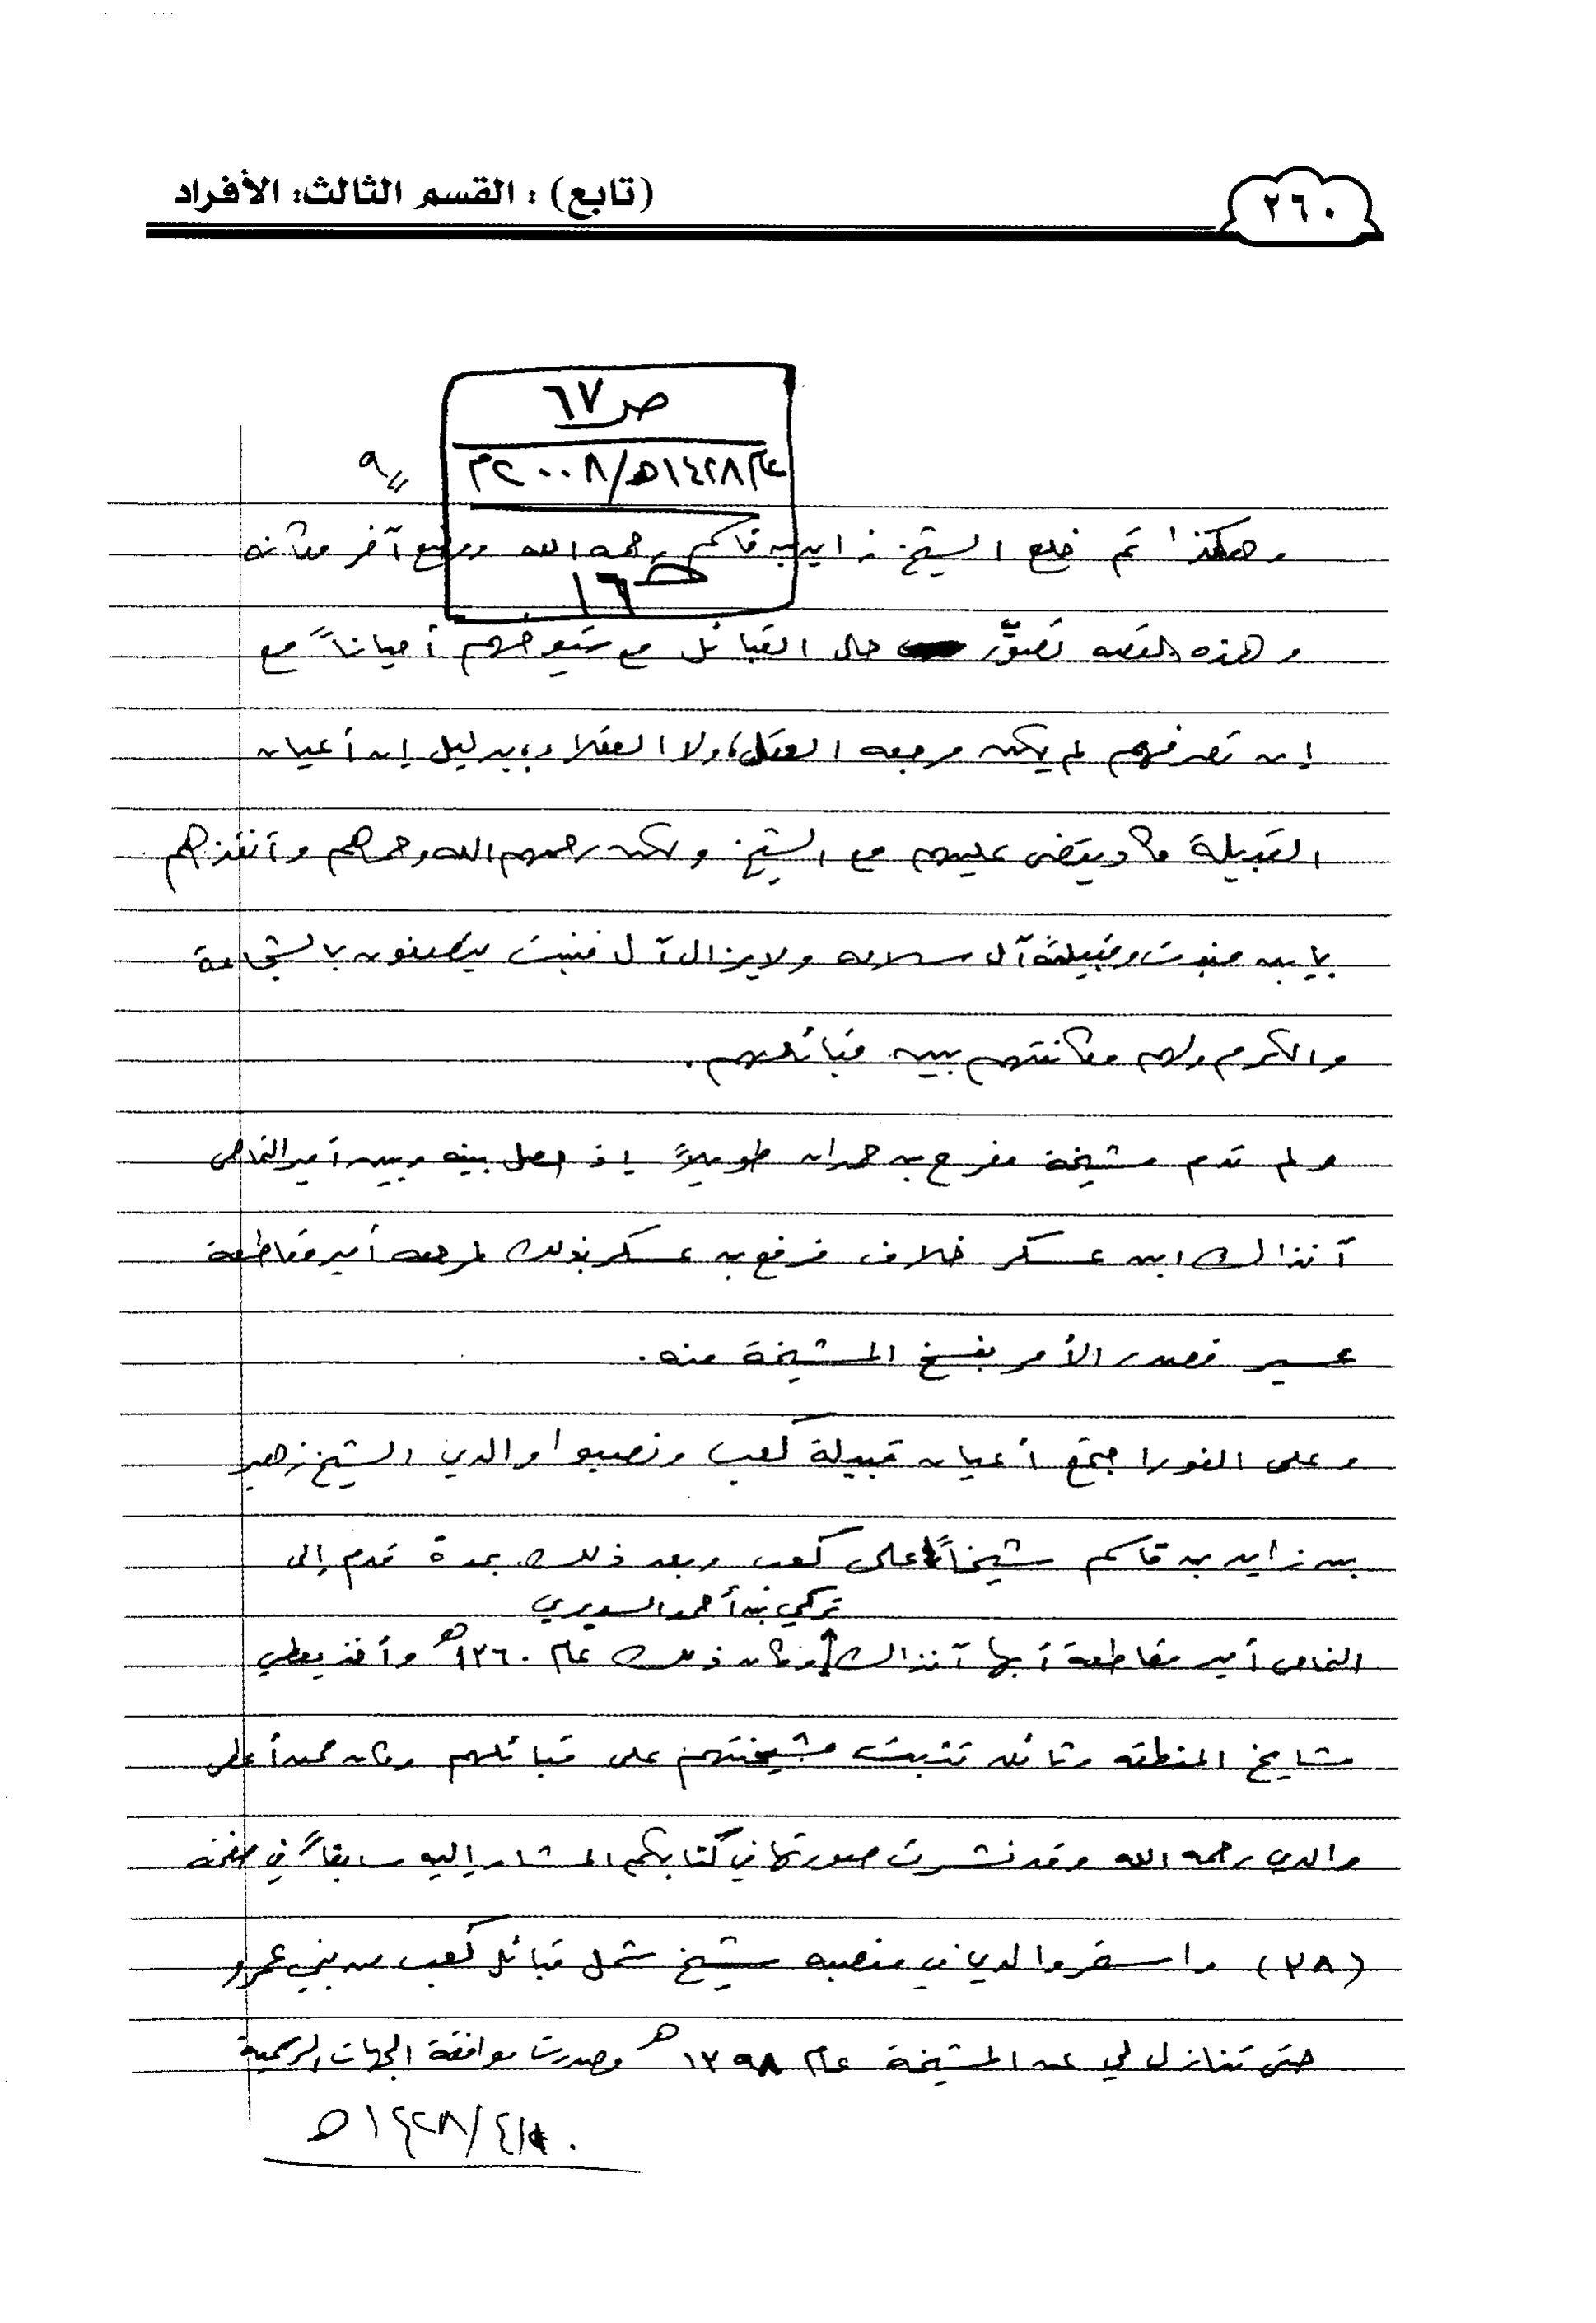 ٢٦٠
(تابع) : القسم الثالث: الأفراد
ص ٦٧
عام ١٤٢٨هـ/٢٠٠٨م
ط ١٦
٩
وهكذا تم خلع الشيخ زايد بن قاسم رحمه الله ووضع آخر مكانه
وهذه القصه تصوّر حال القبائل مع شيوخهم أحياناً مع
إن تصرفهم لم يكن مرجعه العقل، ولا العقلاء، بدليل إن أعيان
القبيلة كاد يقضى عليهم مع الشيخ ولكن رحمهم الله وحماهم وأنقذهم
بابن منبت وقبيلته آل سلامه ولا يزال آل منبت يتصفون بالشجاعة
والكرم ولهم مكانتهم بين قبائلهم.
ولم تدم مشيخة مفرح بن حمدان طويلاً إذ حصل بينه وبين أمير النماص
آنذاك ابن عسكر خلاف فرفع بن عسكر بذلك لمرجعه أمير مقاطعة
عسير فصدر الأمر بفسخ المشيخة منه.
وعلى الفور اجتمع أعيان قبيلة كعب ونصبوا والدي الشيخ زهير
بن زايد بن قاسم شيخاً على كعب وبعد ذلك بمدة قدم إلى
تركي بن أحمد السديري
النماص أمير مقاطعة أبها آنذاك وكان ذلك عام ١٣٦٠هـ وأخذ يعطي
مشايخ المنطقه وثائق تثبت مشيختهم على قبائلهم وكان ممن أعطى
والدي رحمه الله وقد نشرت صورتها في كتابكم المشار إليه سابقاً في صفحة
(٣٨) واستمر والدي في منصبه شيخ شمل قبائل كعب من بني عمرو
حتى تنازل لي عن المشيخة عام ١٣٩٨هـ وصدرت موافقة الجهات الرسمية
١٤٢٨هـ